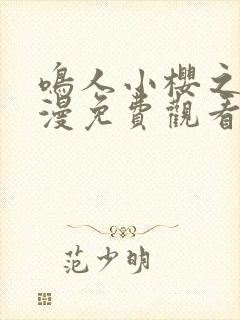 鳴人小櫻之
漫免費觀看
范少明